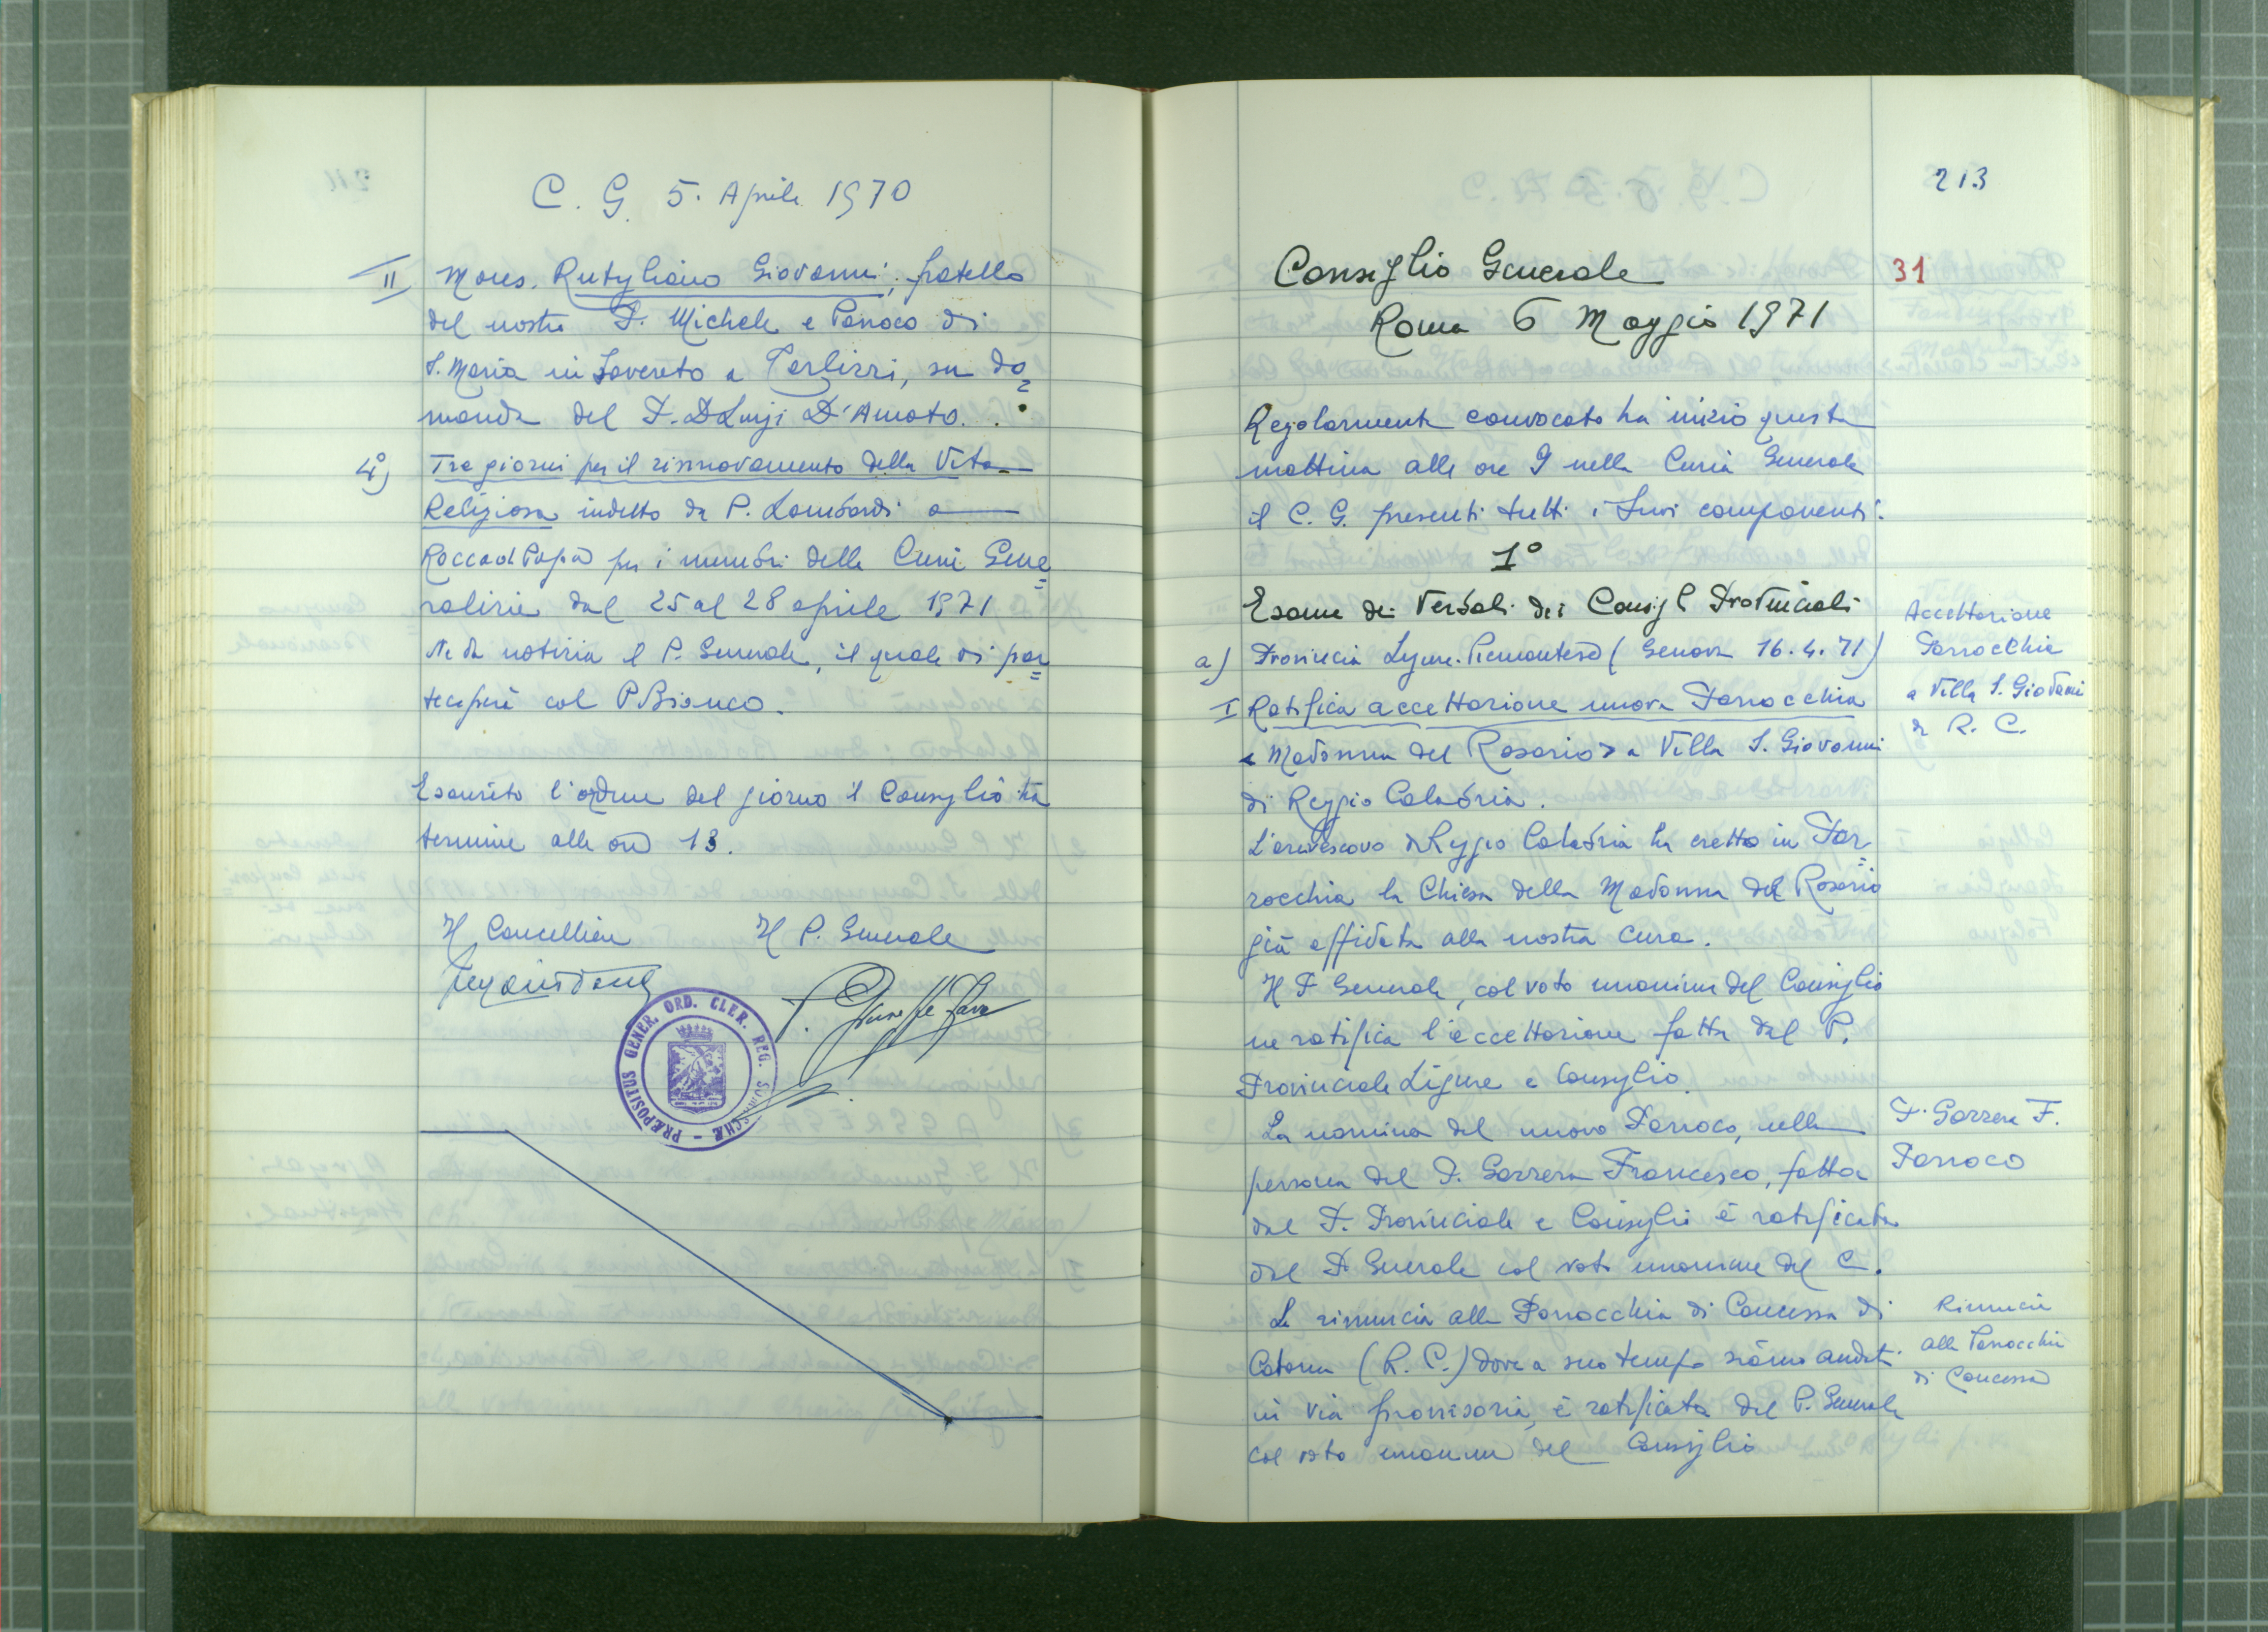 C. G. 5. Aprile 1970
II Mons. Rutigliano Giovanni, fratello
del nostro P. Michele e Parroco di
S. Maria in Sovereto a Terlizzi, su do=
manda del P. D Luigi D'Amato.
4°) Tre giorni per il rinnovamento della Vita
Religiosa indetto da P. Lombardi a
Rocca di Papa per i membri delle Curie Gene=
ralizie dal 25 al 28 aprile 1971
Ne dà notizia il P. Generale, il quale vi par=
teciperà col P. Bianco.
Esaurito l'ordine del giorno il Consiglio ha
termine alle ore 13.
Il Cancelliere Il P. Generale
P. Giuseppe Fava
PRÆPOSITUS GENER. ORD. CLER. REG. SOMASCHÆ
213
Consiglio Generale 31
Roma 6 Maggio 1971
Regolarmente convocato ha inizio questa
mattina alle ore 9 nella Curia Generale
il C. G. presenti tutti i suoi componenti.
1°
Esame dei Verbali dei Consigli Provinciali
a) Provincia Ligure-Piemontese (Genova 16.4.71)
I Ratifica accettazione nuova Parrocchia
«Madonna del Rosario» a Villa S. Giovanni
di Reggio Calabria.
Accettazione
Parrocchia
a Villa S. Giovanni
di R. C.
L'arcivescovo di Reggio Calabria ha eretto in Par=
rocchia la Chiesa della Madonna del Rosario
già affidata alla nostra cura.
Il P. Generale, col voto unanime del Consiglio
ne ratifica l'accettazione fatta dal P.
Provinciale Ligure e Consiglio.
La nomina del nuovo Parroco, nella
persona del P. Gazzera Francesco, fatta
dal P. Provinciale e Consiglio è ratificata
dal P. Generale col voto unanime del C.
P. Gazzera F.
Parroco
La rinuncia alla Parrocchia di Concessa di
Catona (R. C.) dove a suo tempo siamo andati
in via provvisoria, è ratificata dal P. Generale
col voto unanime del Consiglio
Rinuncia
alla Parrocchia
di Concessa